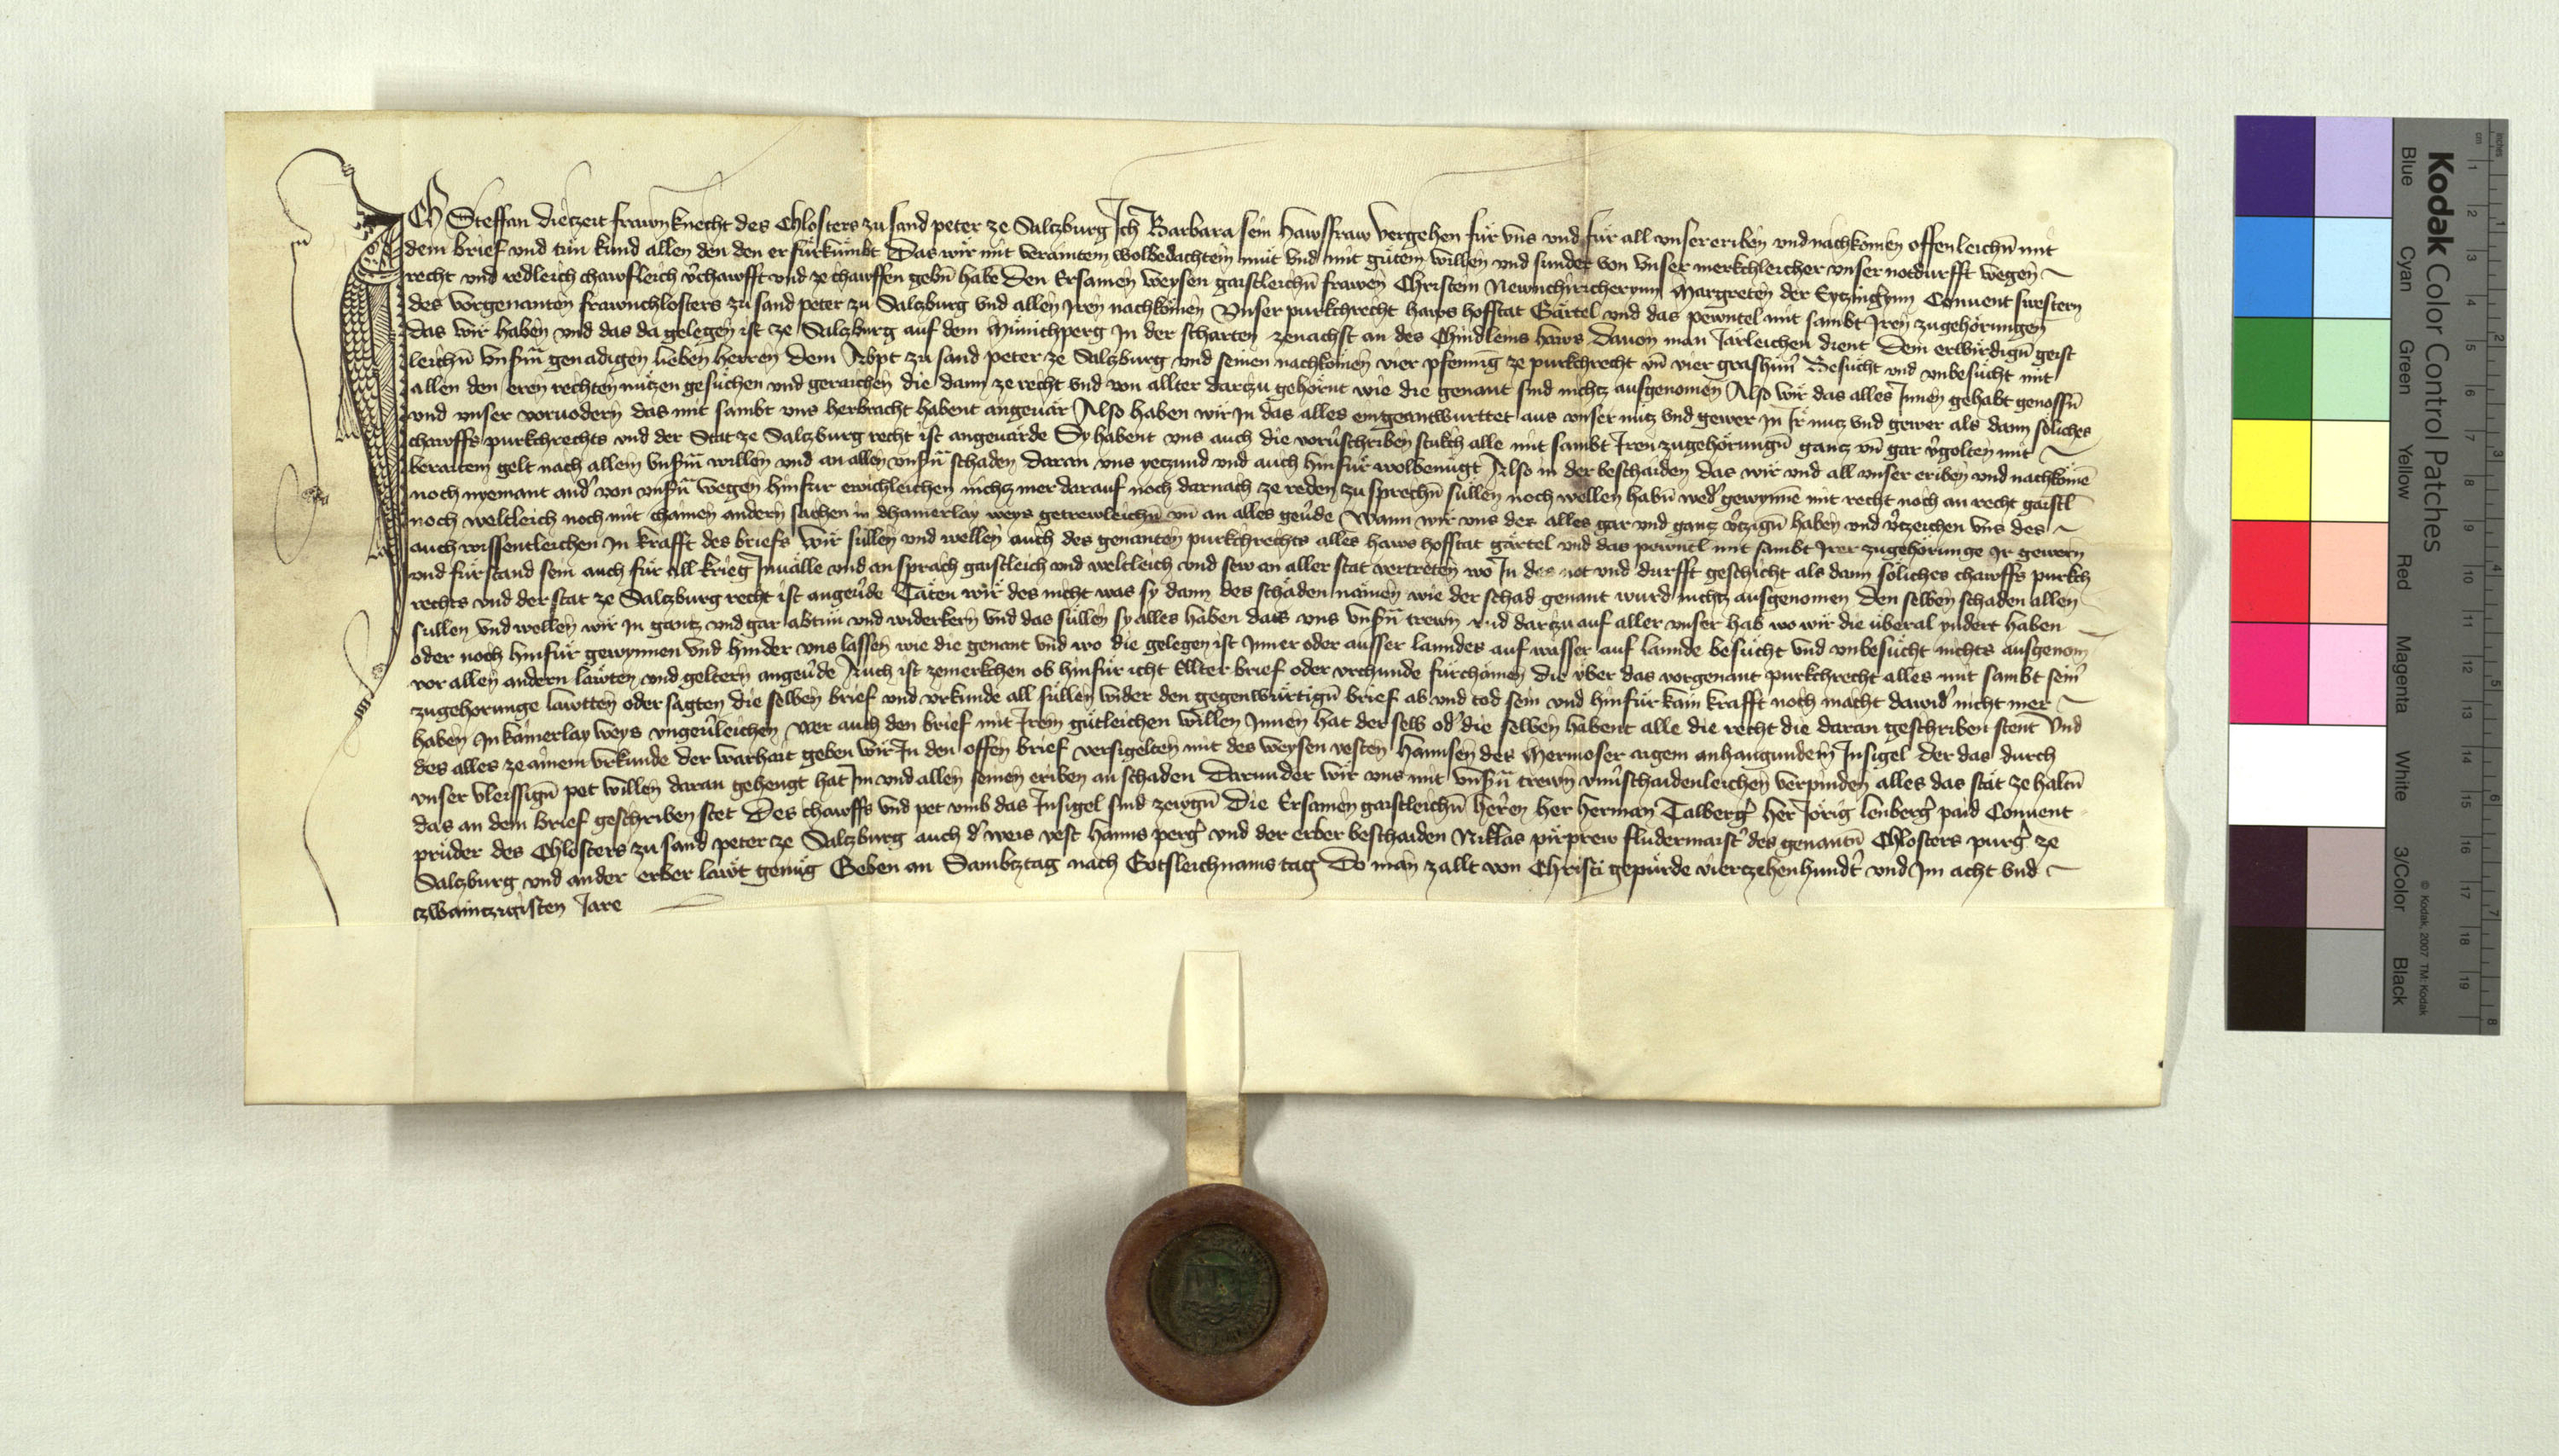 ICH Steffan dietzeit frawnknecht des Chlosters zu sand peter ze Salczburg Ich Barbara sein hawsfraw vergehen für vns vnd für all vnser eriben vnd nachkomen offenleichn̄ mit
dem brief vnd tun kund allen den den er fürkumbt Das wir mit veraintem wolbedachtem müt vnd mit gütem willen vnd sunder von vnser merkchleicher vnser notdurfft wegen
recht vnd redleich chawfleich v̓chawfft vnd ze chawffen gebn̄ habe Den Ersamen weysen gaistleichn̄ frawen Christein Newnchiricherynn Margreten der Eyczingerynn Conuent swestern
des vorgenanten frawnchlosters zu sand peter zu Salczburg vnd allen Iren nachkomen Vnser purkchrecht haws hofstat Gärtel vnd das pewntel mit sambt Iren zugehörungen
das wir haben vnd das da gelegen ist ze Salczburg auf dem Münichperg In der scharten zenachst an des Chindleins haws Dauon man Järleichen dient Dem erwirdign̄ geist
leichn̄ vnserm̄ genadigen lieben herren dem Abpt zu sand peter ze Salczburg vnd seinen nachkomen vier pfennig ze purkchrecht vn̄ vier grashün̓ Besücht vnd vnbesücht mit
allen den eren rechten nützen gesüchen vnd geraichen die dann ze recht vnd von allter darczu gehörnt wie die genant sind nichcz ausgenomen Also wir das alles Innen gehabt genossn̄
vnd vnser voruodern das mit sambt vns herbracht habent angeuär Also haben wir In das alles eingeantwurttet aus vnser nucz vnd gewer In Ir nucz vnd gewer als dann söliches
chawffs purkchrechts vnd der Stat ze Salczburg recht ist angeuärde Sy habent vns auch die vorv̓schriben stukch alle mit sambt Iren zugehörungn̄ gancz vn̄ gar v̓golten mit
beraitem gelt nach allem vnserm̄ willen vnd an allen vnsern̄ schaden Daran vns yeczund vnd auch hinfür wolbenügt Also in der beschaiden das wir vnd all vnser eriben vnd nachkömē
noch nyemant and̓ von vnsern̄ wegen hinfür ewichleichen nichcz mer darauf noch darnach ze reden zu sprechn̄ süllen noch wellen habn̄ wed̓ gewynnē mit recht noch an recht gaistl
noch weltleich noch mit chainen andern sachen in dhainerlay weys getrewleichn̄ vn̄ an alles geu̓de Wann wir vns der alles gar vnd gancz v̓czign̄ haben vnd v̓czeichen vns des
auch wissentleichen In krafft des briefs Wir süllen vnd wellen auch des genanten purkchrechts alles haws hofstat gärtel vnd das pewntl mit sambt Irer zugehörunge Ir gewern
vnd fürstand sein auch für all krieg Inuälle vnd an sprach gaistleich vnd weltleich vnd sew an aller stat vertreten wo In des not vnd durfft geschicht als dann söliches chawffs purkch
rechts vnd der stat ze Salczburg recht ist angeu̓de Täten wir des nicht was sy dann des schaden nämen wie der schad genant wurd nichcz ausgenomen Den selben schaden allen
sullen vnd wellen wir In gantz vnd gar abtün vnd widerkern vnd das süllen sy alles haben datz vns vnsern̄ trewn vnd darczu auf aller vnser hab wo wir die überal yndert haben
oder noch hinfür gewynnen vnd hinder vns lassen wie die genant vnd wo die gelegen ist Inner oder ausser lanndes auf wasser auf lannde besücht vnd vnbesücht nichts ausgenom̄
vor allen andern läwten vnd geltern angeu̓de Auch ist zemerkchen ob hinfür icht Ellter brief oder vrchunde fürchämen die über das vorgenant purkchrecht alles mit sambt sein̓
zugehorunge lawtten oder sagten die selben brief vnd vrkunde all süllen wider den gegenwürtign̄ brief ab vnd tod sein vnd hinfür kain krafft noch macht dawid̓ nicht mer
haben In kainerlay weys vngeu̓leichen Wer auch den brief mit Irem gütleichen willen Innen hat der selb od̓ die selben habent alle die recht die daran geschriben stent Vnd
des alles ze ainem vrkunde der warhait geben wir In den offen brief versigelten mit des weysen vesten Hannsen des Mermoser aigem anhangundem Insigel Der das durch
vnser vleissign̄ pet willen daran gehengt hat Im vnd allen seinen eriben an schaden Darunder wir vns mit vnsern̄ trewn vnu̓schaidenleichen verpinden alles das stät ze haltn̄
das an dem brief geschriben stet Des chawffs vnd pet vmb das Insigel sind zewgn̄ Die Ersamen gaistleichn̄ herren her herman Talberg̓ her Jörig lenberg̓ paid Conuent
prüder des Chlosters zu sand peter ze Salczburg auch d̓ weis vest Hanns perg̓ vnd der erber beschaiden Niklas pirprew fludermaist̓ des genantn̄ Chlosters purg̓ ze
Salczburg vnd ander erber läwt genüg Geben an Sambcztag nach Gotsleichnams tag Do man zallt von Christi gepürde vierczehenhundt̓ vnd Im acht vnd
czwainczigisten Jare
Kodak Color Control Patches
Blue Cyan Green Yellow Red Magenta White 3/Color Black
© Kodak, 2007 TM: Kodak
cm 1 2 3 4 5 6 7 8 9 10 11 12 13 14 15 16 17 18 19
inches 1 2 3 4 5 6 7 8